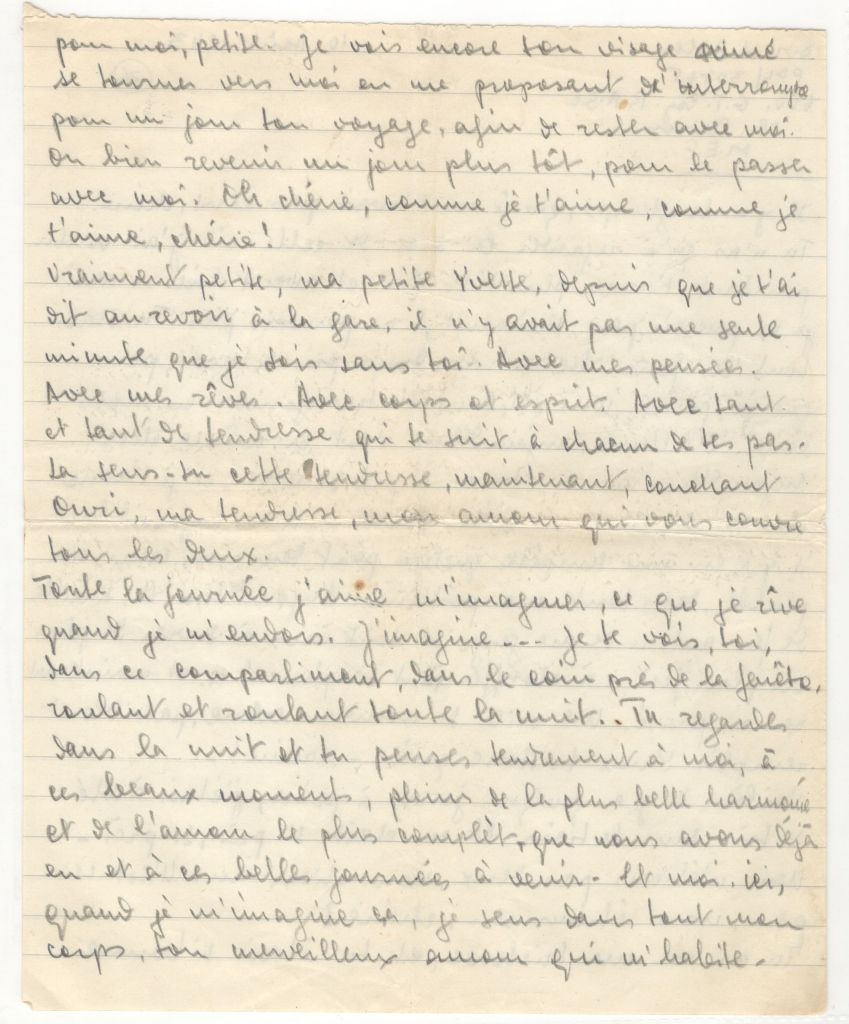 pour moi, petite. Je vois encore ton visage aimé
se tourner vers moi en me proposant d'interrompre
pour un jour ton voyage, afin de rester avec moi.
Ou bien revenir un jour plus tôt, pour le passer
avec moi. Oh chérie, comme je t'aime, comme je
t'aime, chérie!
Vraiment petite, ma petite Yvette, depuis que je t'ai
dit au revoir à la gare, il n'y avait pas une seule
minute que je sois sans toi. Avec mes pensées.
Avec mes rêves. Avec corps et esprit. Avec tant
et tant de tendresse qui te suit à chacun de tes pas.
La sens-tu cette tendresse, maintenant, couchant
Ouri, ma tendresse, mon amour qui vous couvre
tous les deux.
Toute la journée j'aime m'imaginer, ce que je rêve
quand je m'endors. J'imagine... Je te vois, toi,
dans ce compartiment, dans le coin près de la fenêtre,
roulant et roulant toute la nuit. Tu regardes
dans la nuit et tu penses tendrement à moi, à
ces beaux moments, pleins de la plus belle harmonie
et de l'amour le plus complèt, que nous avons déjà
eu et à ces belles journées à venir. Et moi ici,
quand je m'imagine ça, je sens dans tout mon
corps, ton merveilleux amour qui m'habite.